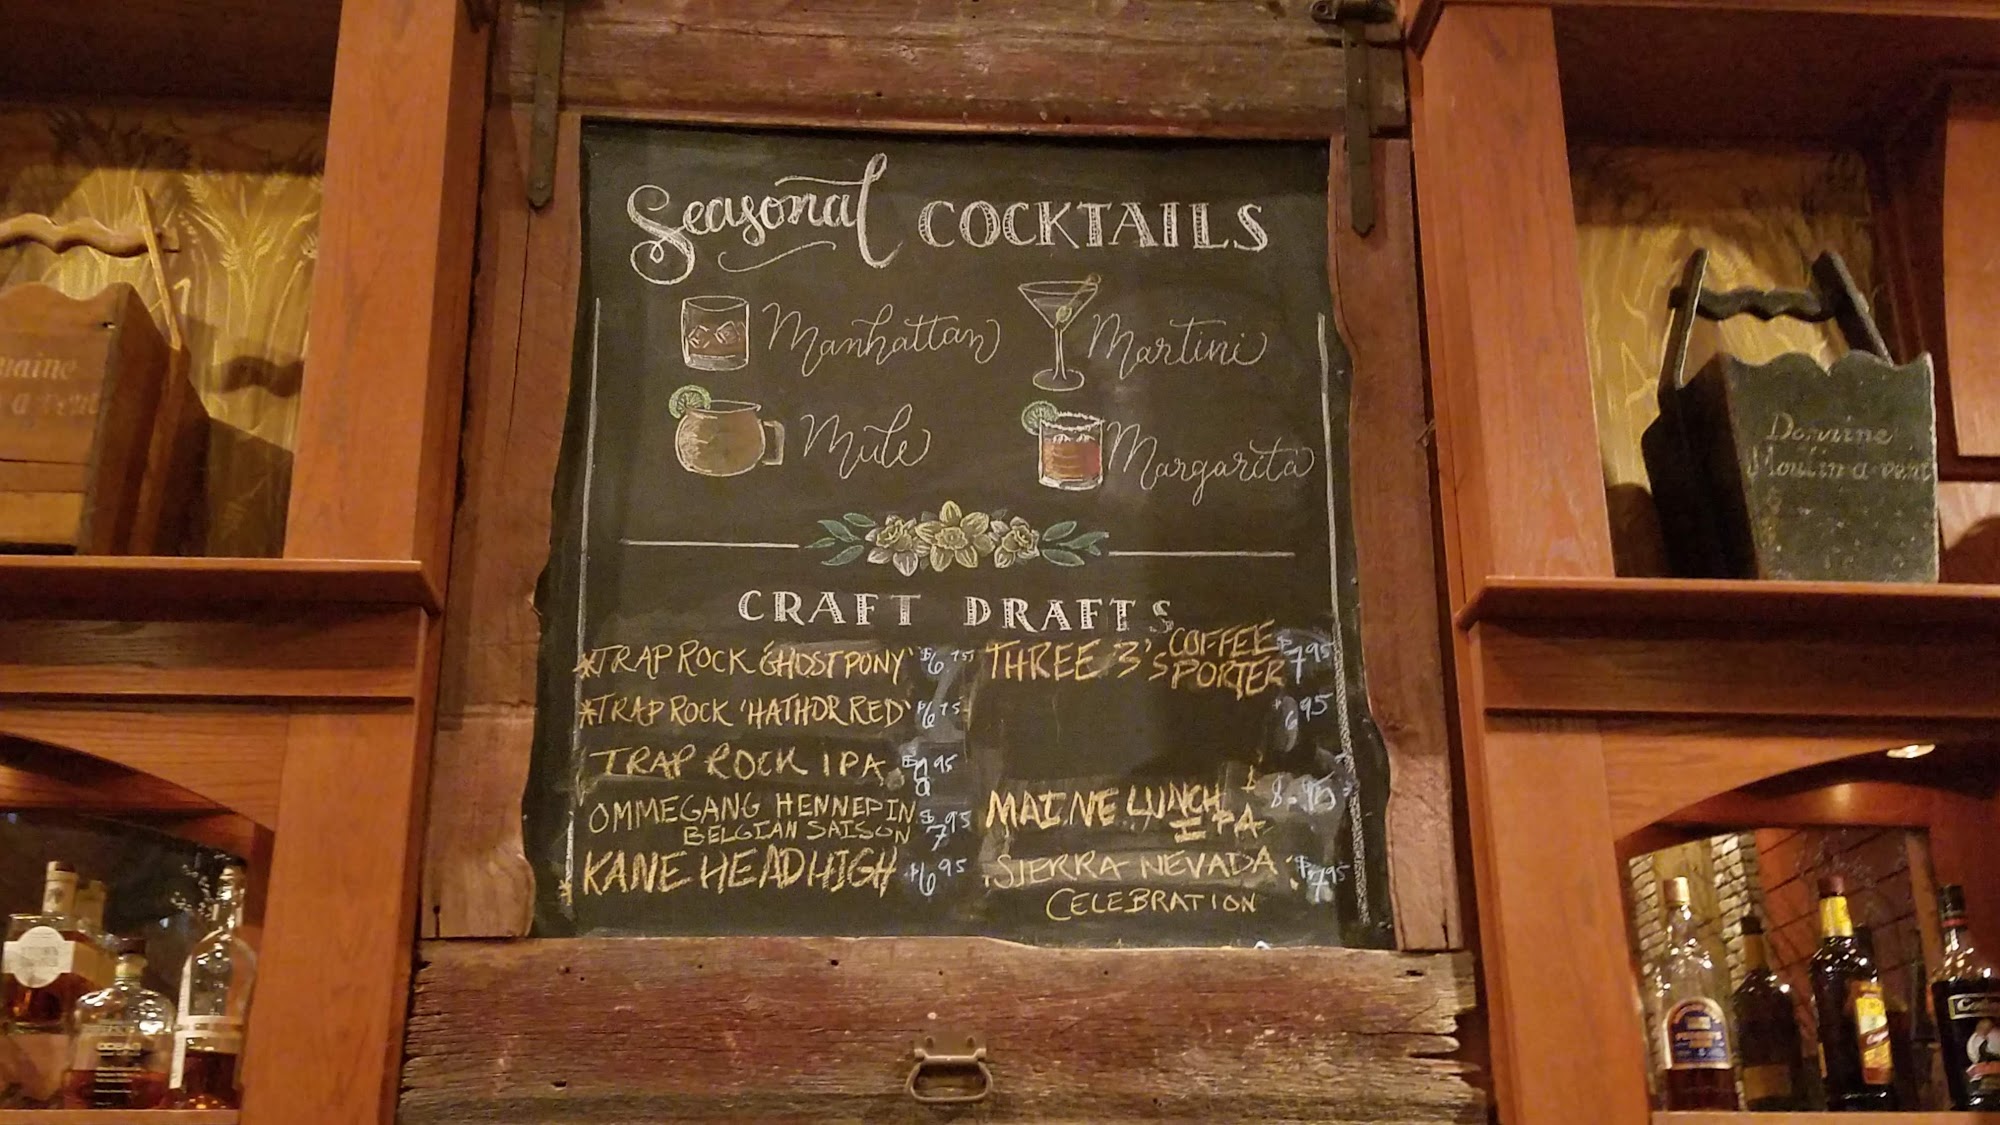 Seasonal COCKTAILS
Manhattan
Martini
Mule
Margarita
CRAFT DRAFTS
*TRAP ROCK 'GHOST PONY' $6.75
*TRAP ROCK 'HATHOR RED' $6.75
TRAP ROCK IPA $ 95
OMMEGANG HENNEPIN
BELGIAN SAISON $7.95
*KANE HEADHIGH $6.95
THREE 3'S COFFEE
PORTER $7.95
$6.95
MAINE LUNCH
IPA $8.95
SIERRA NEVADA $7.95
CELEBRATION
Domaine
Moulin-a-vent